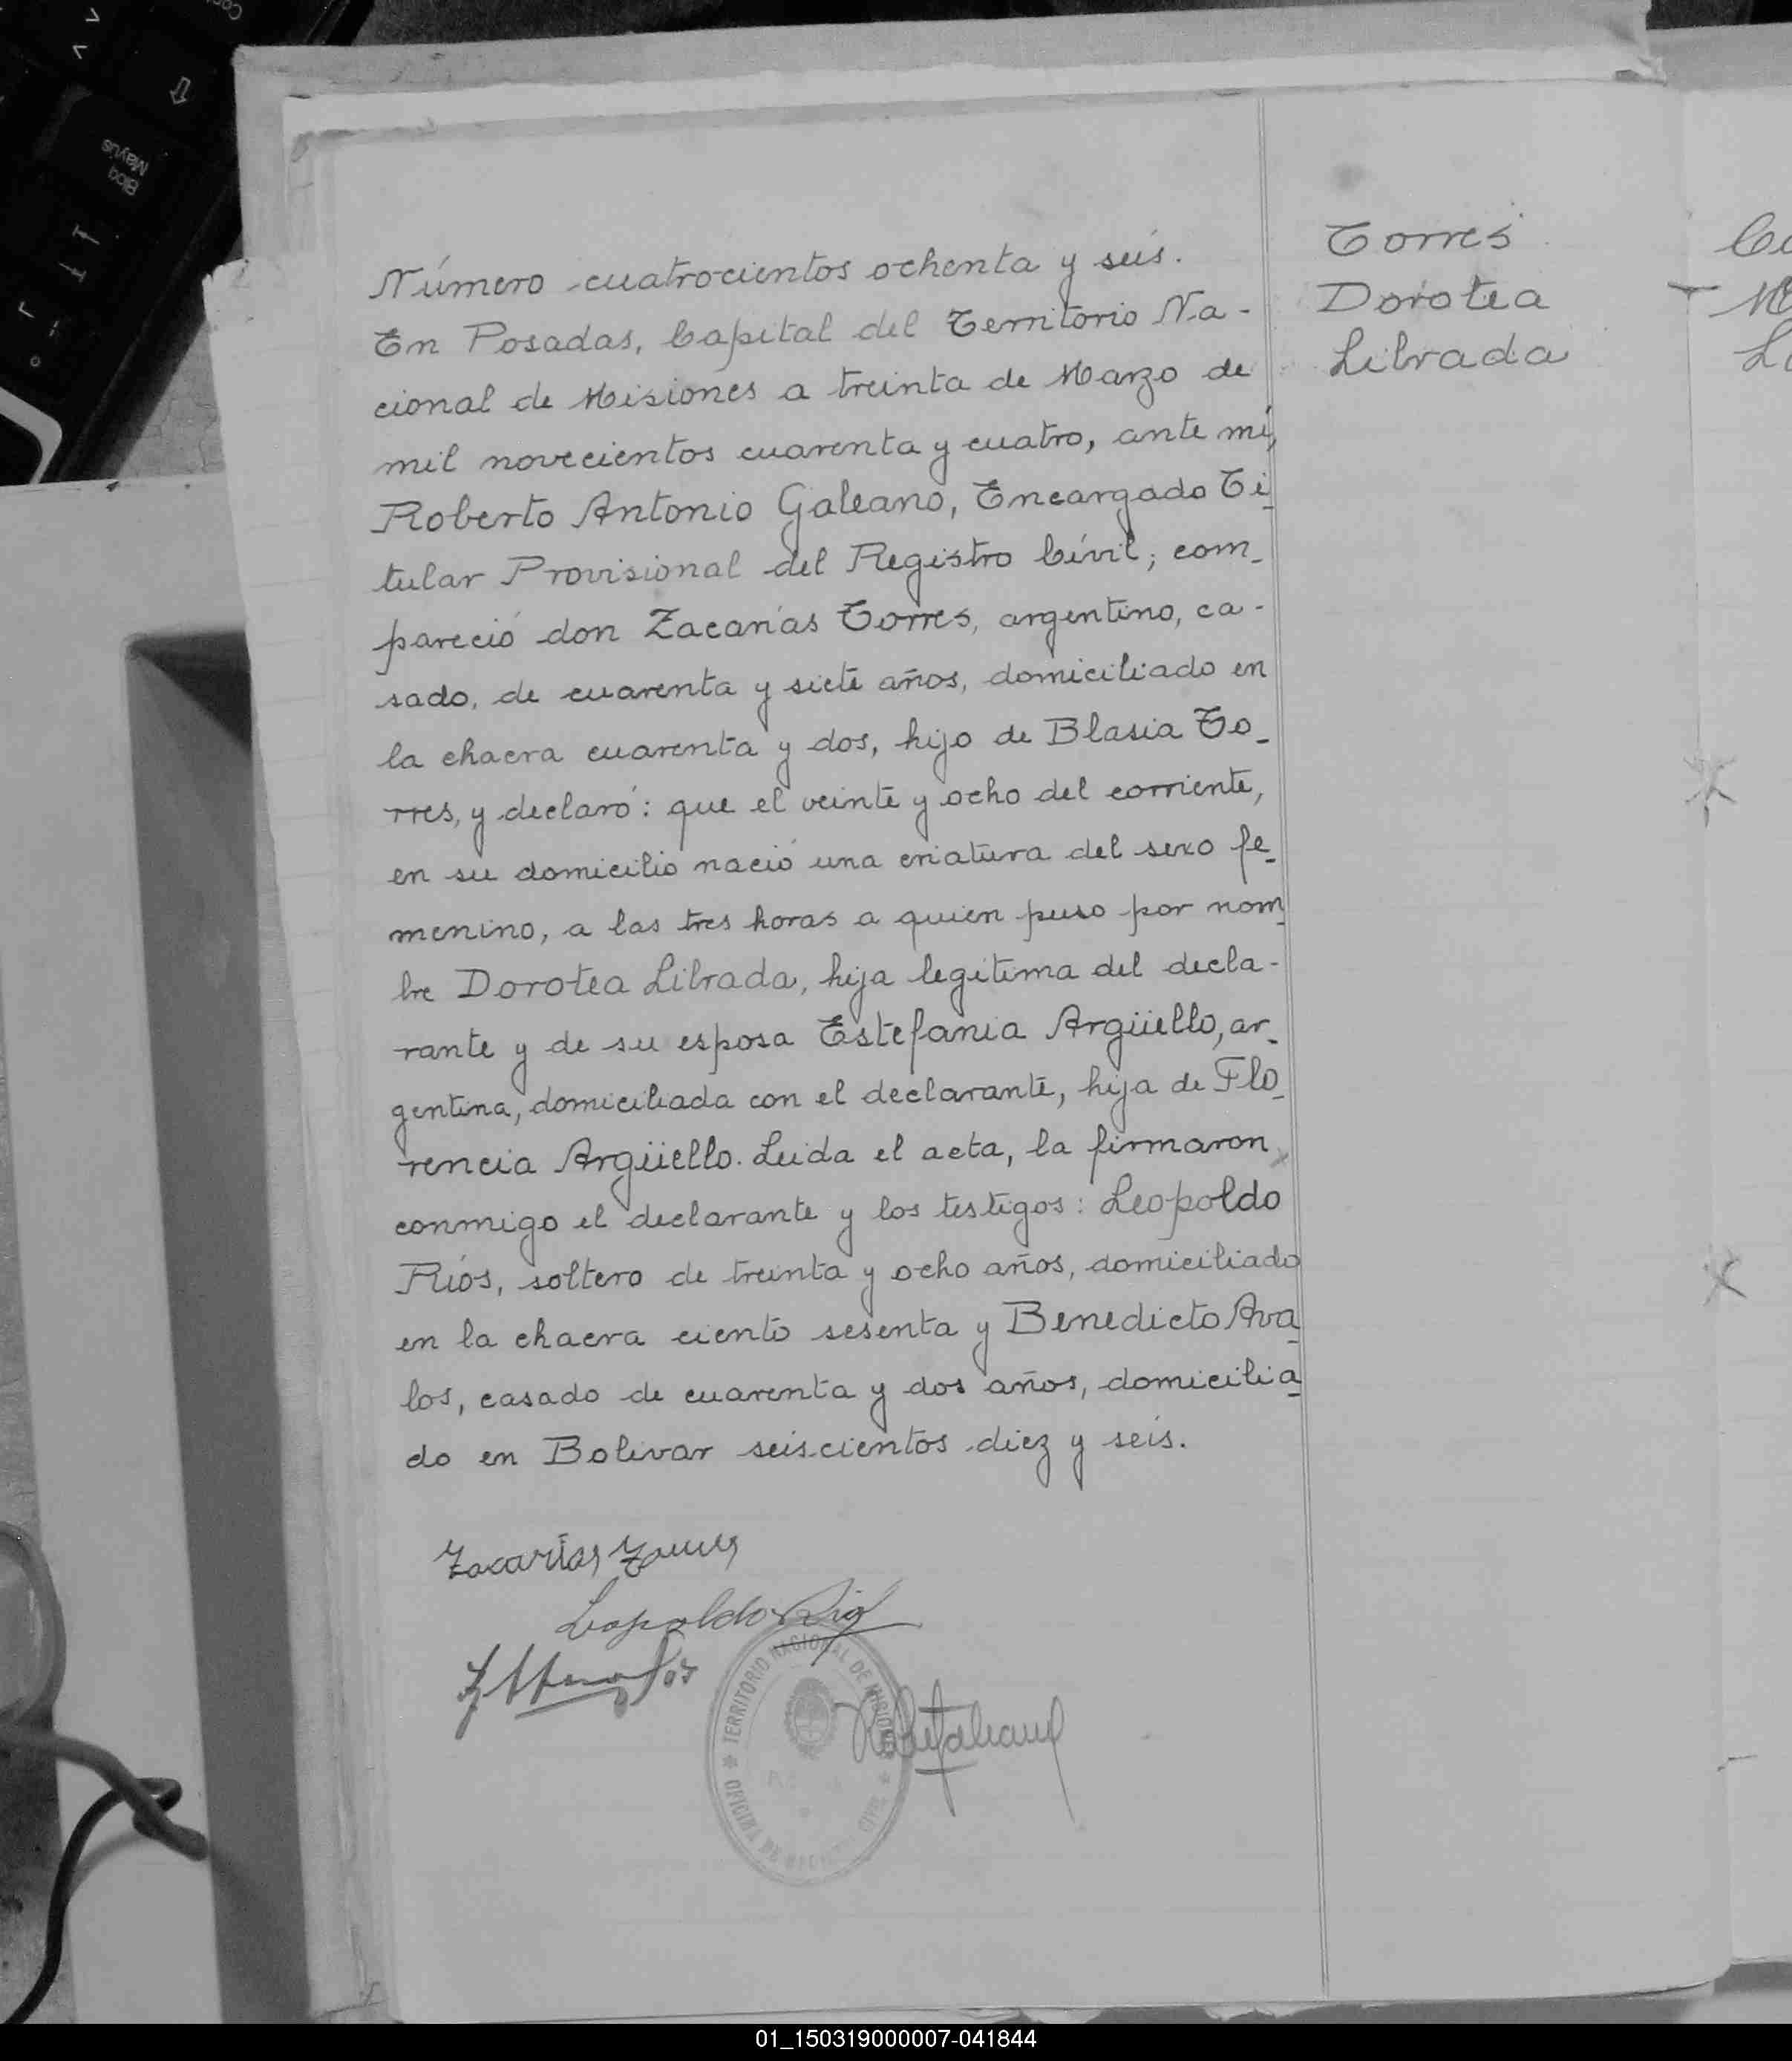 Número cuatrocientos ochenta y seis.
En Posadas, Capital del Territorio Na-
cional de Misiones a treinta de Marzo de
mil novecientos cuarenta y cuatro, ante mí,
Roberto Antonio Galeano, Encargado Ti-
tular Provisional del Registro Cívil; com-
pareció don Zacarías Torres, argentino, ca-
sado, de cuarenta y siete años, domiciliado en
la chacra cuarenta y dos, hijo de Blasia To-
rres, y declaró: que el veinte y ocho del corriente,
en su domicilio nació una criatura del sexo fe-
menino, a las tres horas a quien puso por nom-
bre Dorotea Librada, hija legitima del decla-
rante y de su esposa Estefania Argüello, ar-
gentina, domiciliada con el declarante, hija de Flo-
rencia Argüello. Leida el acta, la firmaron
conmigo el declarante y los testigos: Leopoldo
Ríos, soltero de treinta y ocho años, domiciliado
en la chacra ciento sesenta y Benedicto Ava-
los, casado de cuarenta y dos años, domicilia-
do en Bolivar seiscientos diez y seis.
Zacarías Torres
Leopoldo Rios
TERRITORIO NACIONAL DE MISIONES
OFICINA DE REGISTRO CIVIL
Torres
Dorotea
Librada
Bloq
Mayús
01_150319000007-041844